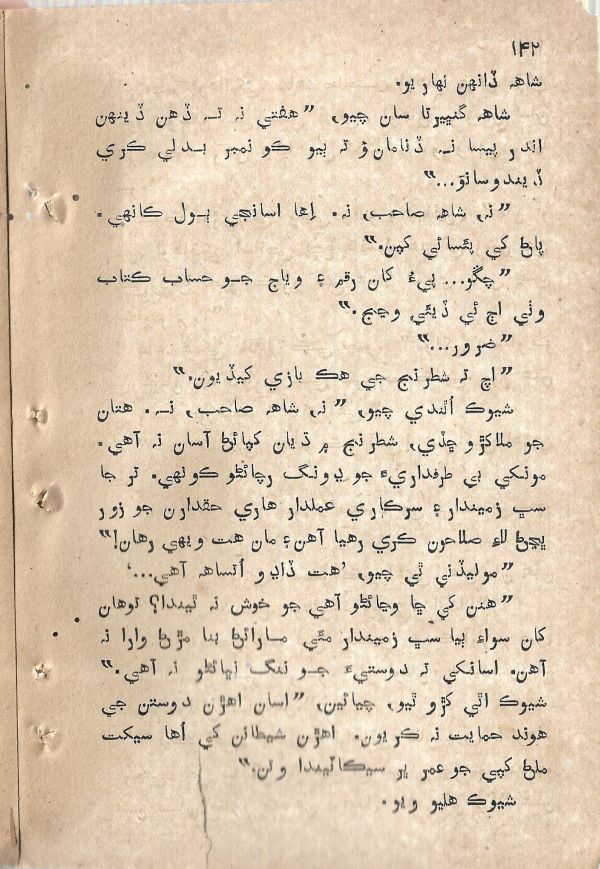 ۱۴۲
شاهه ڏانهن نهاريو.
شاهه گنڀيرتا سان چيو، ”هفتي نه ته ڏهن ڏينهن
اندر پيسا نه ڏنامانؤ ته ٻيو ڪو نمبر بدلي ڪري
ڏيندوسانؤ...“
”نه، شاهه صاحب، نه. اِها اسانجي ٻول ڪانهي.
پاڻ کي پئسائي کپن.“
”چڱو... پيءُ کان رقم ۽ وياج جو حساب ڪتاب
وٺي اڄ ئي ڏيئي وڃج.“
”ضرور...“
”اچ ته شطرنج جي هڪ بازي کيڏيون.“
شيوڪ اُٿندي چيو، ”نه، شاهه صاحب، نه. هتان
جو ملاکڙو ڇڏي، شطرنج ۾ ڌيان کپائڻ آسان نه آهي.
مونکي بي طرفداريءَ جو ڍونگ رچائڻو ڪونهي. تر جا
سڀ زميندار ۽ سرڪاري عملدار هاري حقدارن جو زور
ڀڃڻ لاءِ صلاحون ڪري رهيا آهن ۽ مان هت ويهي رهان!“
”موليڏني ٿي چيو، ’هت ڏاڍو اُتساهه آهي...‘
”هنن کي ڇا وڃائڻو آهي جو خوش نه ٿيندا؟ توهان
کان سواءِ ٻيا سڀ زميندار مٿي مارائڻ بنا مڙڻ وارا نه
آهن. اسانکي ته دوستيءَ جو ننگ نڀائڻو نه آهي.“
شيوڪ اٿي کڙو ٿيو، چيائين، ”اسان اهڙن دوستن جي
هوند حمايت نه ڪريون. اهڙن شيطانن کي اُها سيکت
ملڻ کپي جو عمر ڀر سيڪاٽيندا وتن.“
شيوڪ هليو ويو.